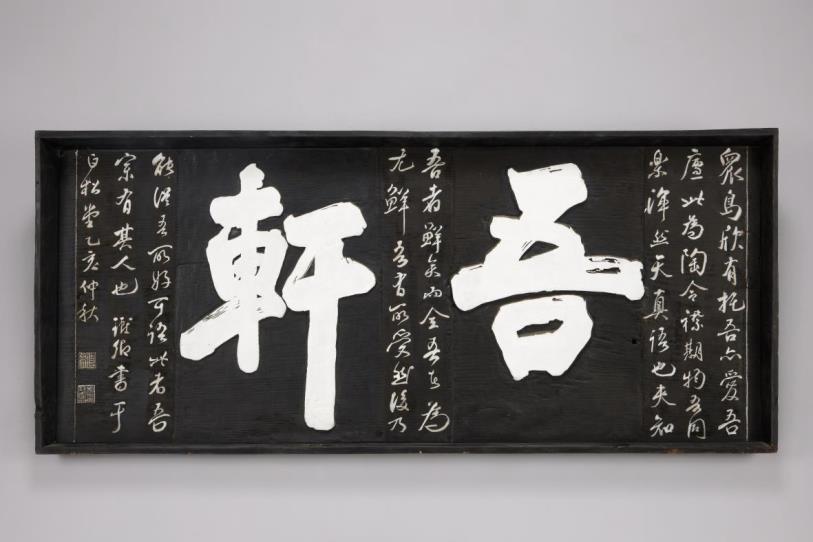 衆鳥欣有托吾亦愛吾
廬此為陶令襟期物吾同
樂渾然天真語也夫知
吾
吾者鮮矣而全吾真為
尤鮮吾書所愛然後乃
軒
能從吾所好可語此者吾
宗有其人也 書于
白松堂乙亥仲秋